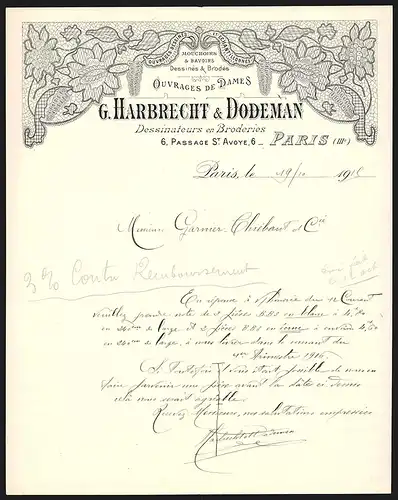 OUVRAGES BRODÉS
MOUCHOIRS
& BAVOIRS
Dessinés & Brodés
OUVRAGES DE DAMES
G. HARBRECHT & DODEMAN
Dessinateurs en Broderies
6, PASSAGE ST AVOYE, 6 _ PARIS (IIIe)
Paris, le 19/10 1915
Messieurs Garnier, Thiébaut et Cie
3 % Contre Remboursement
En réponse à du 12 Courant
veuillez prendre note de 2 pièces BBO en blanc à
en 240 de large et 2 pièces BBO en à
en 240 de large, à nous livrer dans le courant du
1er trimestre 1916.
Si toutefois il vous était possible de nous en
faire parvenir une pièce avant la date ci-dessus
cela nous serait agréable.
Recevez Messieurs, nos salutations empressées